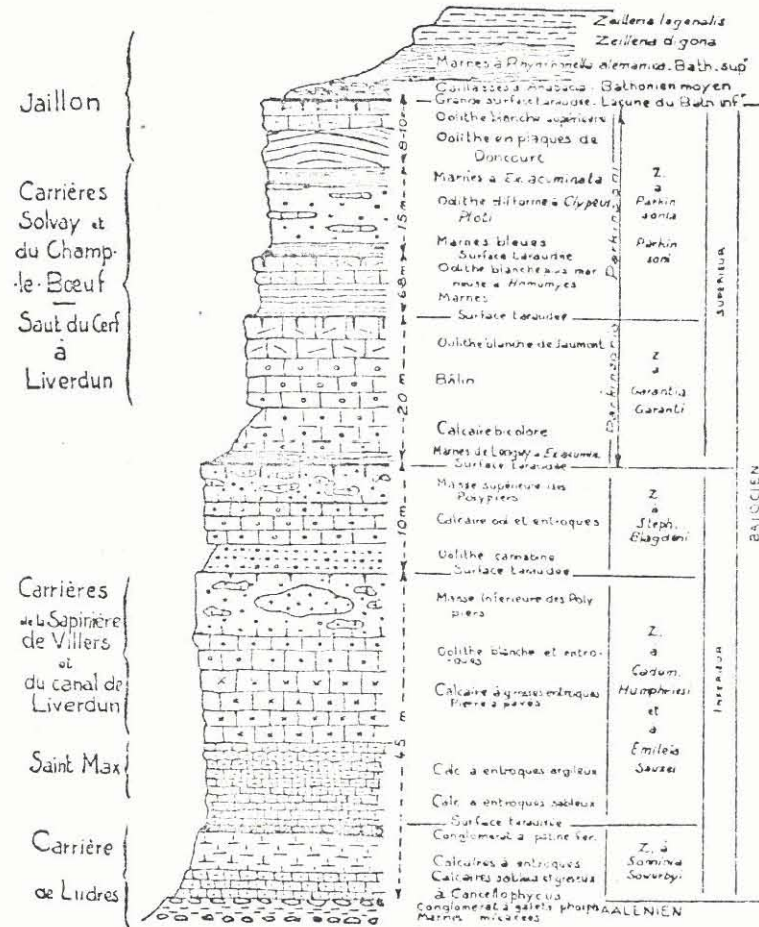 Jaillon
Carrières
Solvay et
du Champ-
-le-Bœuf
Saut du Cerf
à
Liverdun
Carrières
de la Sapinière
de Villers
et
du canal de
Liverdun
Saint Max
Carrière
de Ludres
8-10m
15m
6-8m
20m
10m
45 m
Zeilleria lagenalis
Zeilleria digona
Marnes à Rhynchonella alemanica. Bath. supr
Caillasses à Anabacia. Bathonien moyen
Grande surface taraudée. Lacune du Bath. infr
Oolithe blanche supérieure
Oolithe en plaques de
Doncourt
Marnes à Ex. acuminata
Oolithe difforme à Clypeus
Ploti
Marnes bleues
Surface taraudée
Oolithe blanche
à Homomyes
Marnes
Surface taraudée
Oolithe blanche de Jaumont
Bâlin
Calcaire bicolore
Marnes de Longwy à Ex. acumin.
Surface taraudée
Masse supérieure des
Polypiers
Calcaire ool. et entroques
Oolithe cannabine
Surface taraudée
Masse inférieure des Poly
piers
Oolithe blanche et entro-
ques
Calcaire à grosses entroques
Pierre à pavés
Calc. à entroques argileux
Calc. à entroques sableux
Surface taraudée
Conglomérat à patine fer.
Calcaires à entroques
Calcaires sableux et gréseux
à Cancellophycus
Conglomérat à galets phosph.
Marnes micacées
AALENIEN
Parkinsonia Parkinsoni
Z.
à
Parkin
sonia
Parkin
soni
Z
à
Garantia
Garanti
Z
à
Steph.
Blagdeni
Z.
à
Cadom.
Humphriesi
et
à
Emileia
Sauzei
Z. à
Sonninia
Sowerbyi
SUPÉRIEUR
INFÉRIEUR
BAJOCIEN